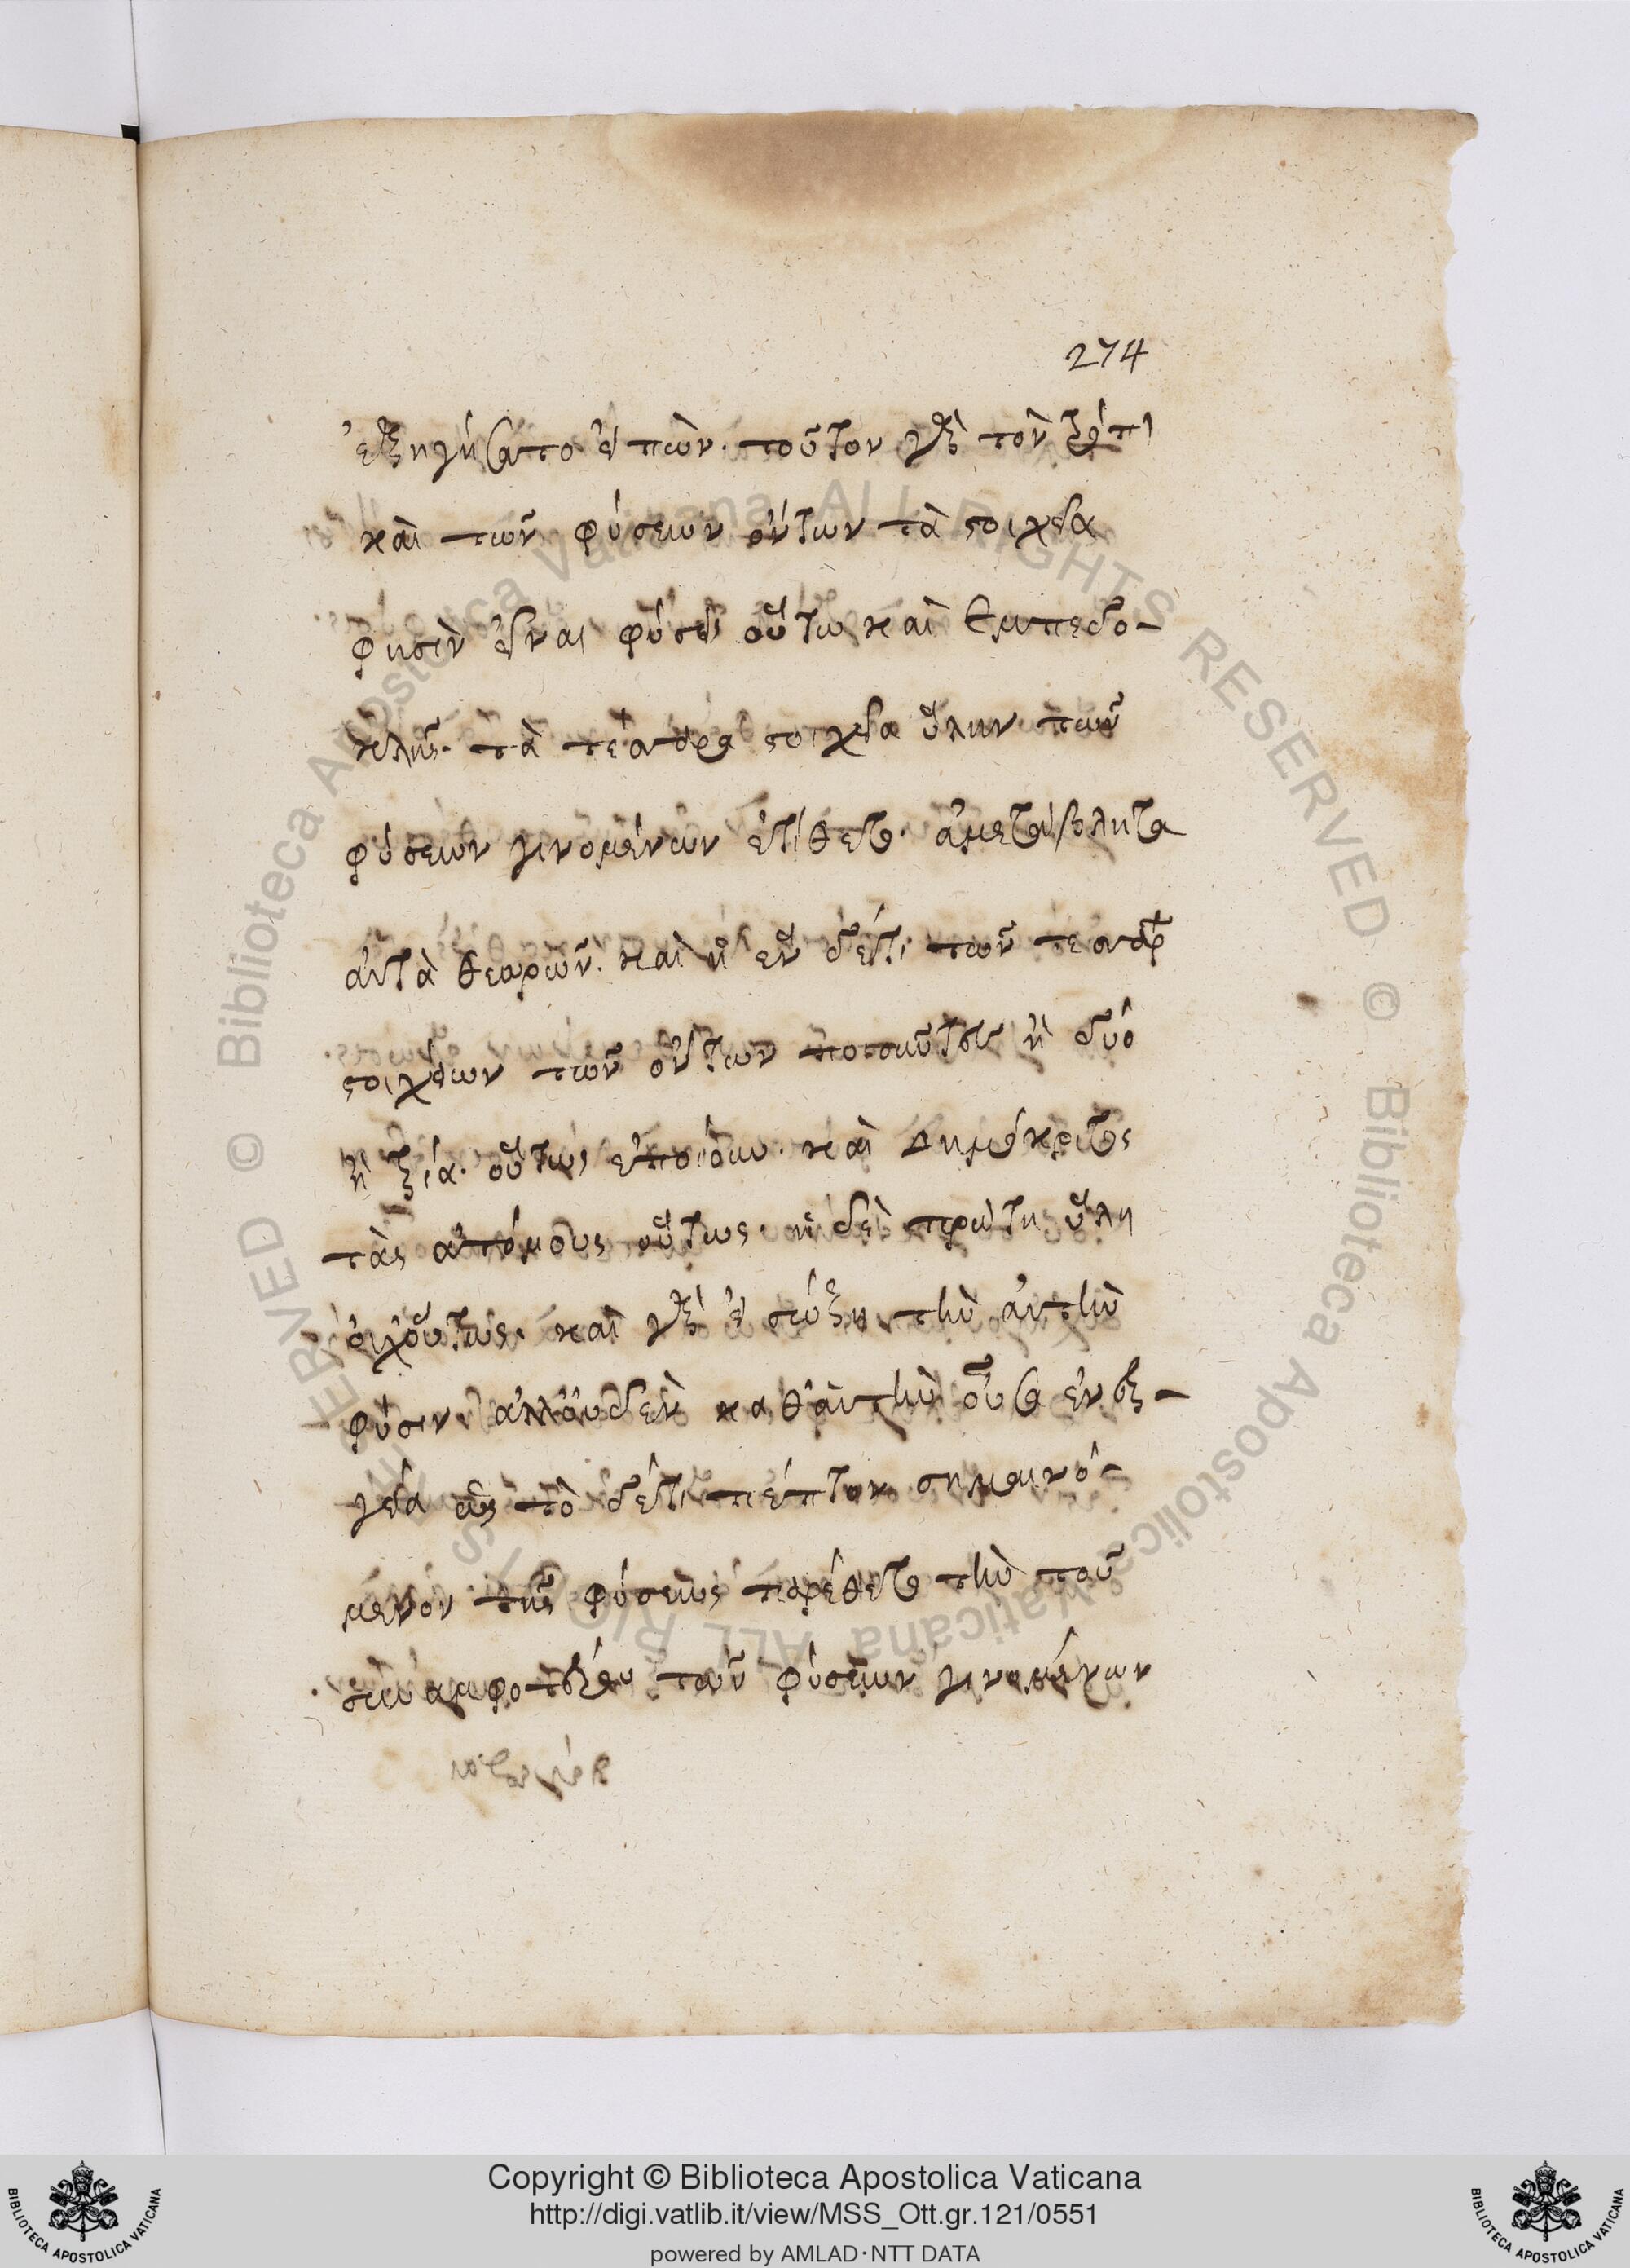 274
ἐξηγήσατο εἰπών. τοῦτον γὰρ τὸν τρόπον
καὶ τῶν φύσει ὄντων τὰ στοιχεῖα
φησὶν εἶναι φύσεις οὕτω καὶ Ἐμπεδο-
κλῆς. τὰ τέσσαρα στοιχεῖα ὕλην τῶν
φύσει γινομένων ἐτίθετο. ἀμετάβλητα
αὐτὰ θεωρῶν. καὶ ἢ ἕν ἐστι τῶν τεσσάρων
στοιχείων τῶν ὄντων τοιοῦτον ἢ δύο
ἢ τρία. οὕτως καὶ Δημόκριτος
τὰς ἀτόμους οὕτως. ἡ δὲ πρώτη ὕλη
οὐχ οὕτως. καὶ γὰρ εἰ σώζει τὴν αὐτὴν
φύσιν. ἀλλ' οὐδὲν καθ' αὑτὴν οὖσα ἐνερ-
γείᾳ ὡς τὸ σημαινό-
μενον τῆς φύσεως παρέθετο τὴν τοῦ
συναμφοτέρου τῶν φύσει γινομένων
Copyright © Biblioteca Apostolica Vaticana
http://digi.vatlib.it/view/MSS_Ott.gr.121/0551
powered by AMLAD·NTT DATA
BIBLIOTECA APOSTOLICA VATICANA
BIBLIOTECA APOSTOLICA VATICANA
© Biblioteca Apostolica Vaticana ALL RIGHTS RESERVED © Biblioteca Apostolica Vaticana ALL RIGHTS RESERVED